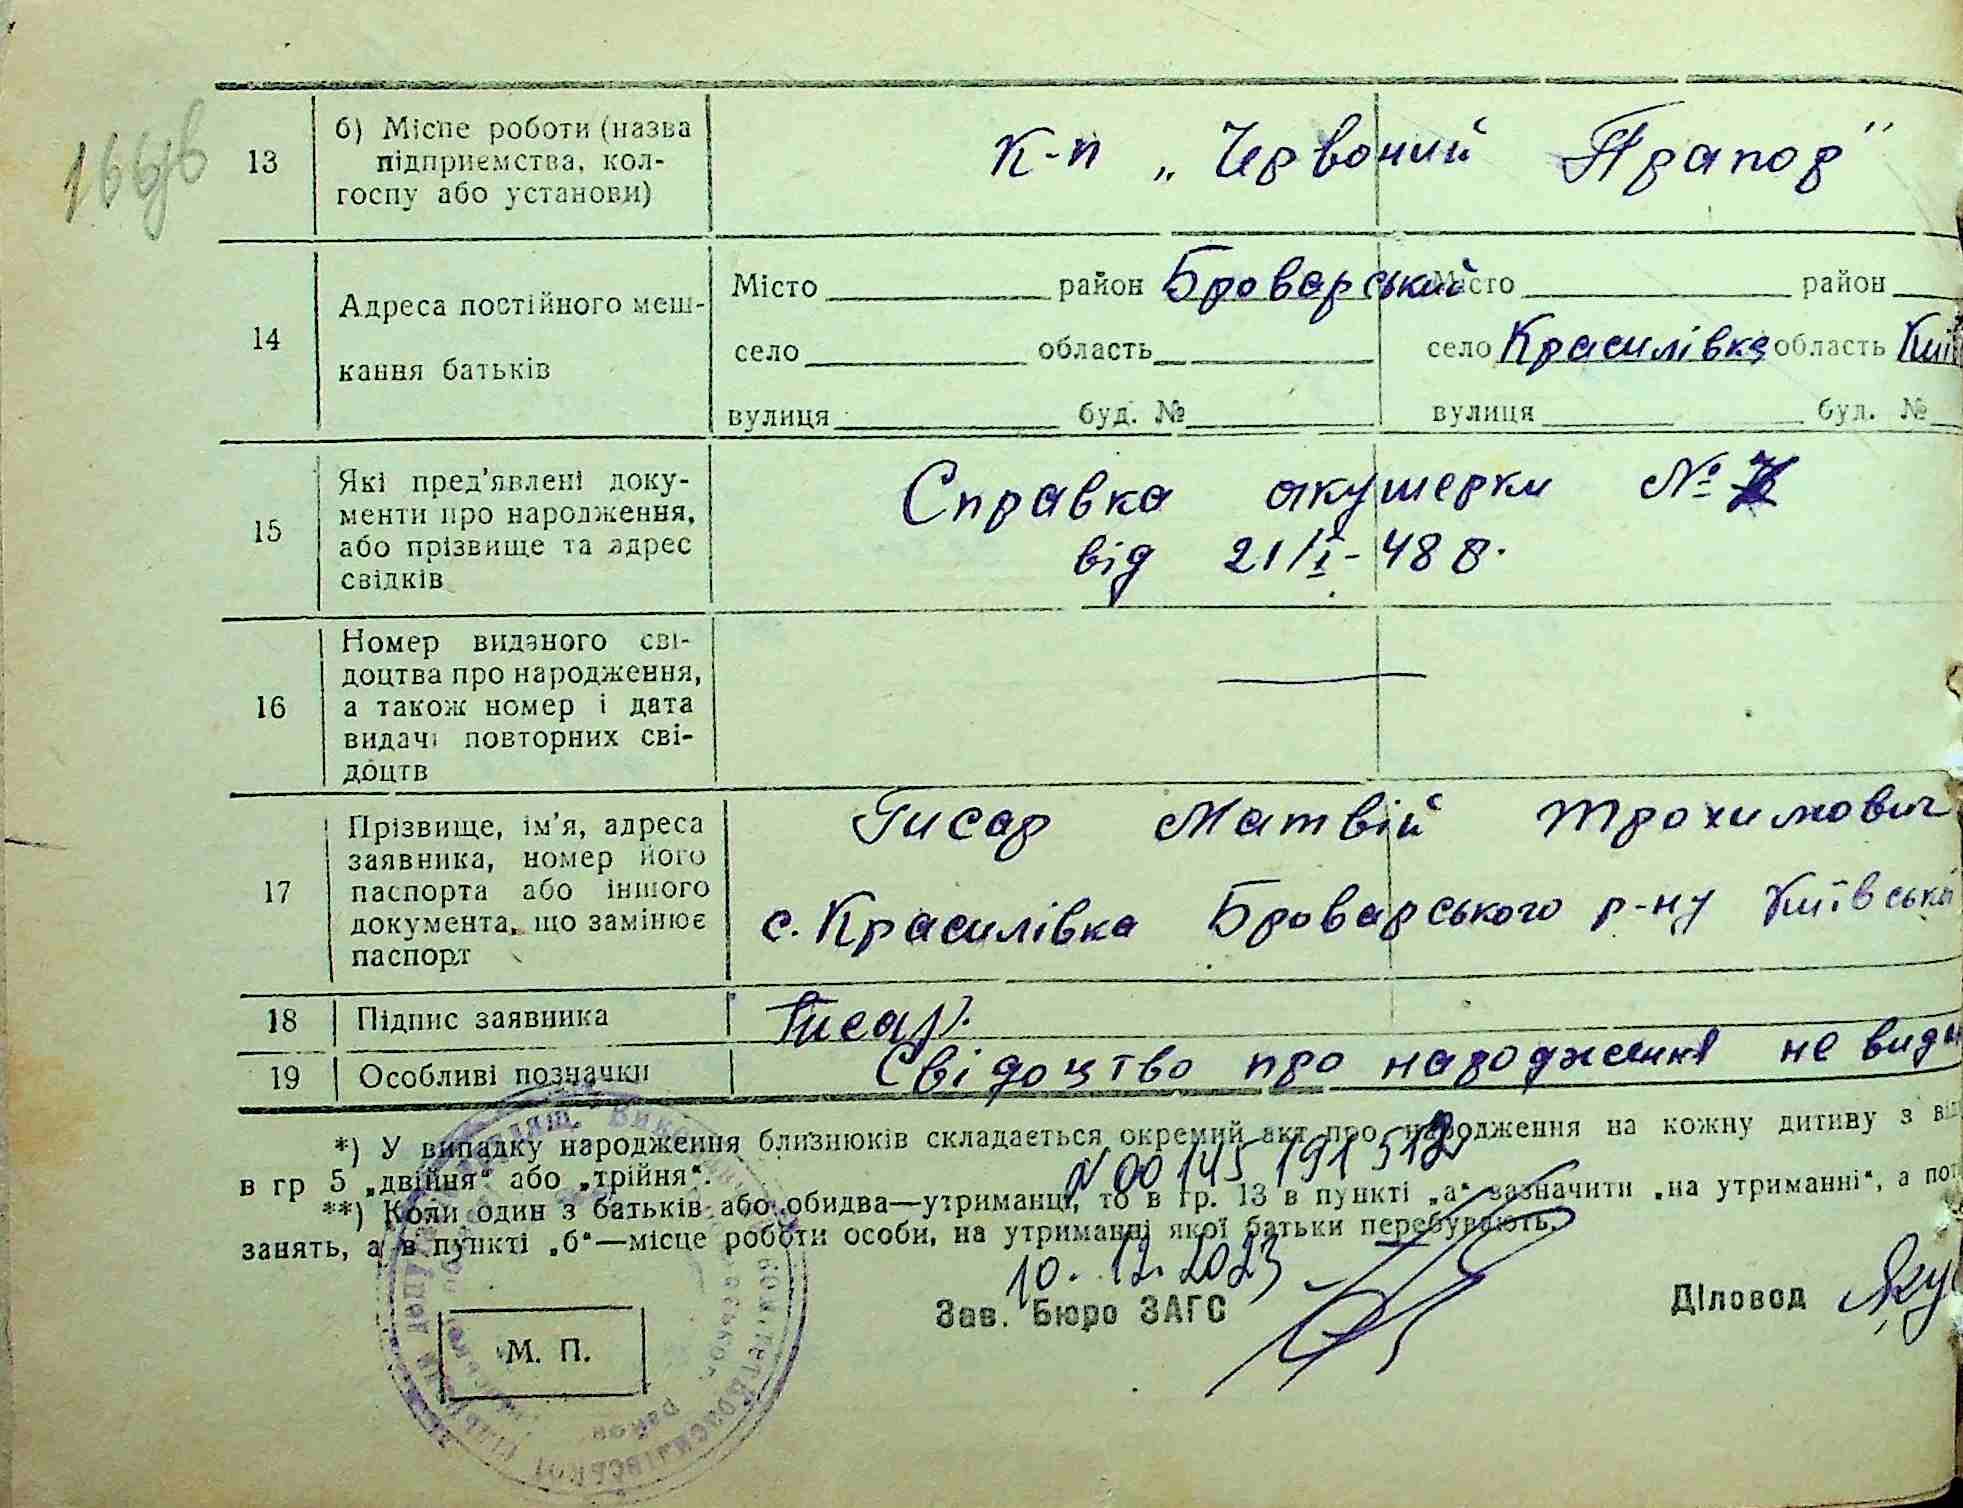 166зв
13 б) Місце роботи (назва підприємства, колгоспу або установи) К-п „Червоний Прапор"
14 Адреса постійного мешкання батьків
Місто район Броварський Місто район
село область село Красилівка область Киї
вулиця буд. № вулиця буд. №
15 Які пред'явлені документи про народження, або прізвище та адрес свідків Справка акушерки №
від 21/I-48 в.
16 Номер виданого свідоцтва про народження, а також номер і дата видачі повторних свідоцтв —
17 Прізвище, ім'я, адреса заявника, номер його паспорта або іншого документа, що замінює паспорт
Гисар Матвій Трохимович
с. Красилівка Броварського р-ну Київської
18 Підпис заявника Гисар.
19 Особливі позначки Свідоцтво про народження не вида
*) У випадку народження близнюків складається окремий акт про народження на кожну дитину з від
в гр 5 „двійня“ або „трійня“.
N 00145191512
**) Коли один з батьків або обидва—утриманці, то в гр. 13 в пункті „а“ зазначити „на утриманні“, а пот
занять, а в пункті „б“—місце роботи особи, на утриманні якої батьки перебувають.
10.12.2023
Зав. Бюро ЗАГС
Діловод
М. П.